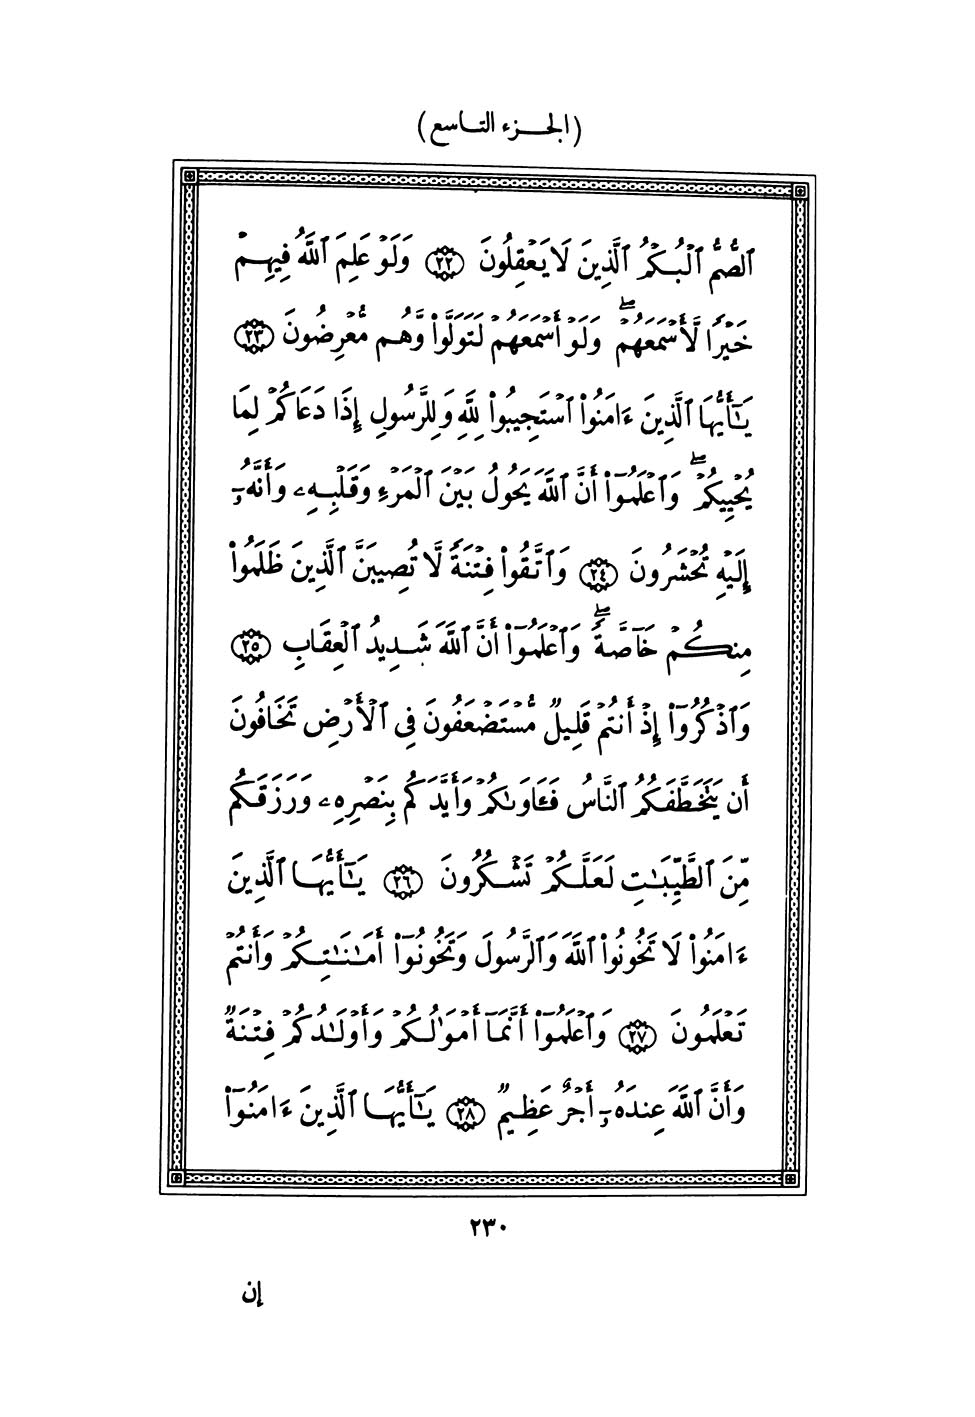 (الجزء التاسع)
ٱلصُّمُّ ٱلْبُكْمُ ٱلَّذِينَ لَا يَعْقِلُونَ ﴿٢٢﴾ وَلَوْ عَلِمَ ٱللَّهُ فِيهِمْ
خَيْرًا لَّأَسْمَعَهُمْۖ وَلَوْ أَسْمَعَهُمْ لَتَوَلَّوا۟ وَّهُم مُّعْرِضُونَ ﴿٢٣﴾
يَـٰٓأَيُّهَا ٱلَّذِينَ ءَامَنُوا۟ ٱسْتَجِيبُوا۟ لِلَّهِ وَلِلرَّسُولِ إِذَا دَعَاكُمْ لِمَا
يُحْيِيكُمْۖ وَٱعْلَمُوٓا۟ أَنَّ ٱللَّهَ يَحُولُ بَيْنَ ٱلْمَرْءِ وَقَلْبِهِۦ وَأَنَّهُۥٓ
إِلَيْهِ تُحْشَرُونَ ﴿٢٤﴾ وَٱتَّقُوا۟ فِتْنَةً لَّا تُصِيبَنَّ ٱلَّذِينَ ظَلَمُوا۟
مِنكُمْ خَآصَّةًۖ وَٱعْلَمُوٓا۟ أَنَّ ٱللَّهَ شَدِيدُ ٱلْعِقَابِ ﴿٢٥﴾
وَٱذْكُرُوٓا۟ إِذْ أَنتُمْ قَلِيلٌ مُّسْتَضْعَفُونَ فِى ٱلْأَرْضِ تَخَافُونَ
أَن يَتَخَطَّفَكُمُ ٱلنَّاسُ فَـَٔاوَىٰكُمْ وَأَيَّدَكُم بِنَصْرِهِۦ وَرَزَقَكُم
مِّنَ ٱلطَّيِّبَـٰتِ لَعَلَّكُمْ تَشْكُرُونَ ﴿٢٦﴾ يَـٰٓأَيُّهَا ٱلَّذِينَ
ءَامَنُوا۟ لَا تَخُونُوا۟ ٱللَّهَ وَٱلرَّسُولَ وَتَخُونُوٓا۟ أَمَـٰنَـٰتِكُمْ وَأَنتُمْ
تَعْلَمُونَ ﴿٢٧﴾ وَٱعْلَمُوٓا۟ أَنَّمَآ أَمْوَٰلُكُمْ وَأَوْلَـٰدُكُمْ فِتْنَةٌ
وَأَنَّ ٱللَّهَ عِندَهُۥٓ أَجْرٌ عَظِيمٌ ﴿٢٨﴾ يَـٰٓأَيُّهَا ٱلَّذِينَ ءَامَنُوٓا۟
٢٣٠
إن